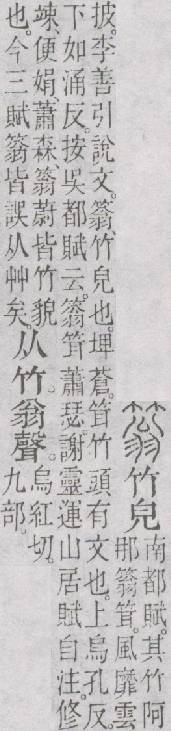 䈵竹皃
南都賦。其竹阿
那䈵䇯。風靡雲
披。李善引說文。䈵、竹皃也。埤蒼。䇯竹頭有文也。上烏孔反。
下如涌反。按吳都賦云。䈵䇯蕭瑟。謝靈運山居賦自注。修
竦、便娟、蕭森、䈵蔚、皆竹貌
也。今三賦䈵皆誤从艸矣。
从竹。翁聲。
烏紅切。
九部。